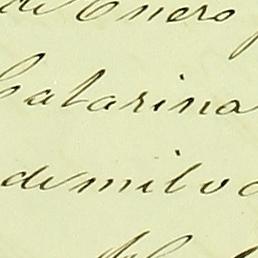 de Enero
Catarina
de mil vo